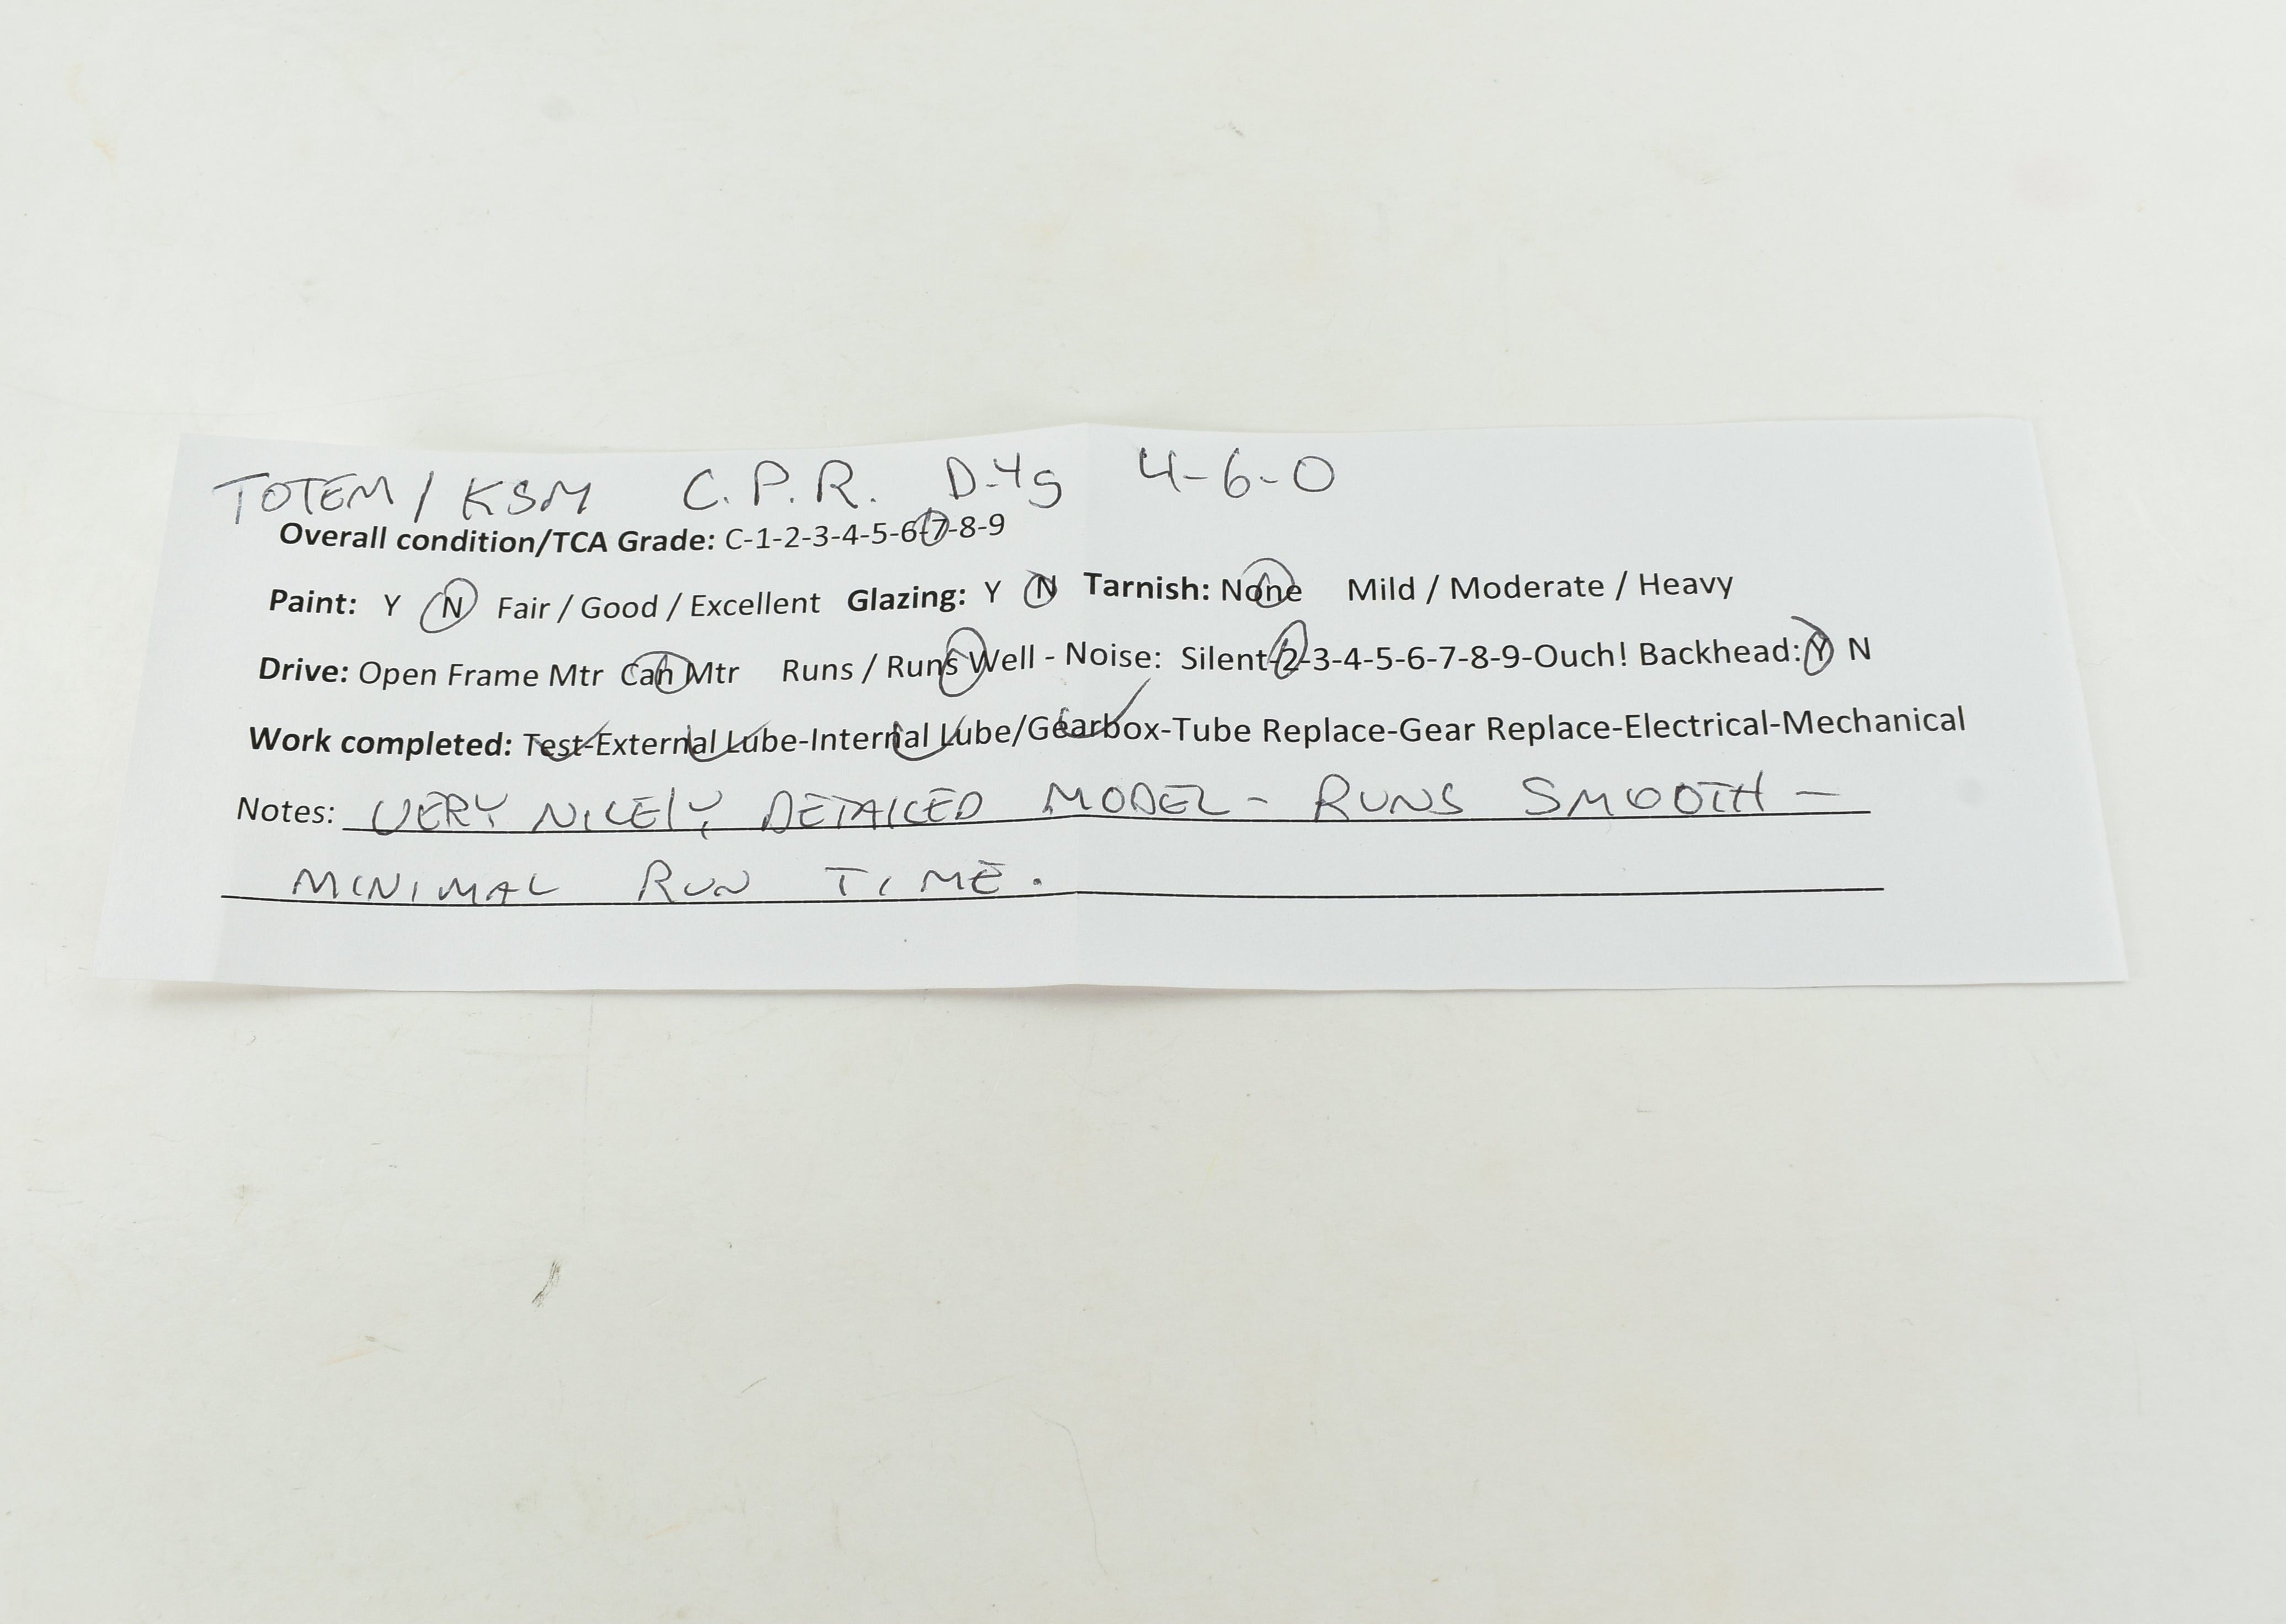 TOTEM / KSM C.P.R. D-4g 4-6-0
Overall condition/TCA Grade: C-1-2-3-4-5-6-7-8-9
Paint: Y N Fair / Good / Excellent Glazing: Y N Tarnish: None Mild / Moderate / Heavy
Drive: Open Frame Mtr Can Mtr Runs / Runs Well - Noise: Silent-2-3-4-5-6-7-8-9-Ouch! Backhead: Y N
Work completed: Test-External Lube-Internal Lube/Gearbox-Tube Replace-Gear Replace-Electrical-Mechanical
Notes: VERY NICELY DETAILED MODEL - RUNS SMOOTH -
MINIMAL RUN TIME.